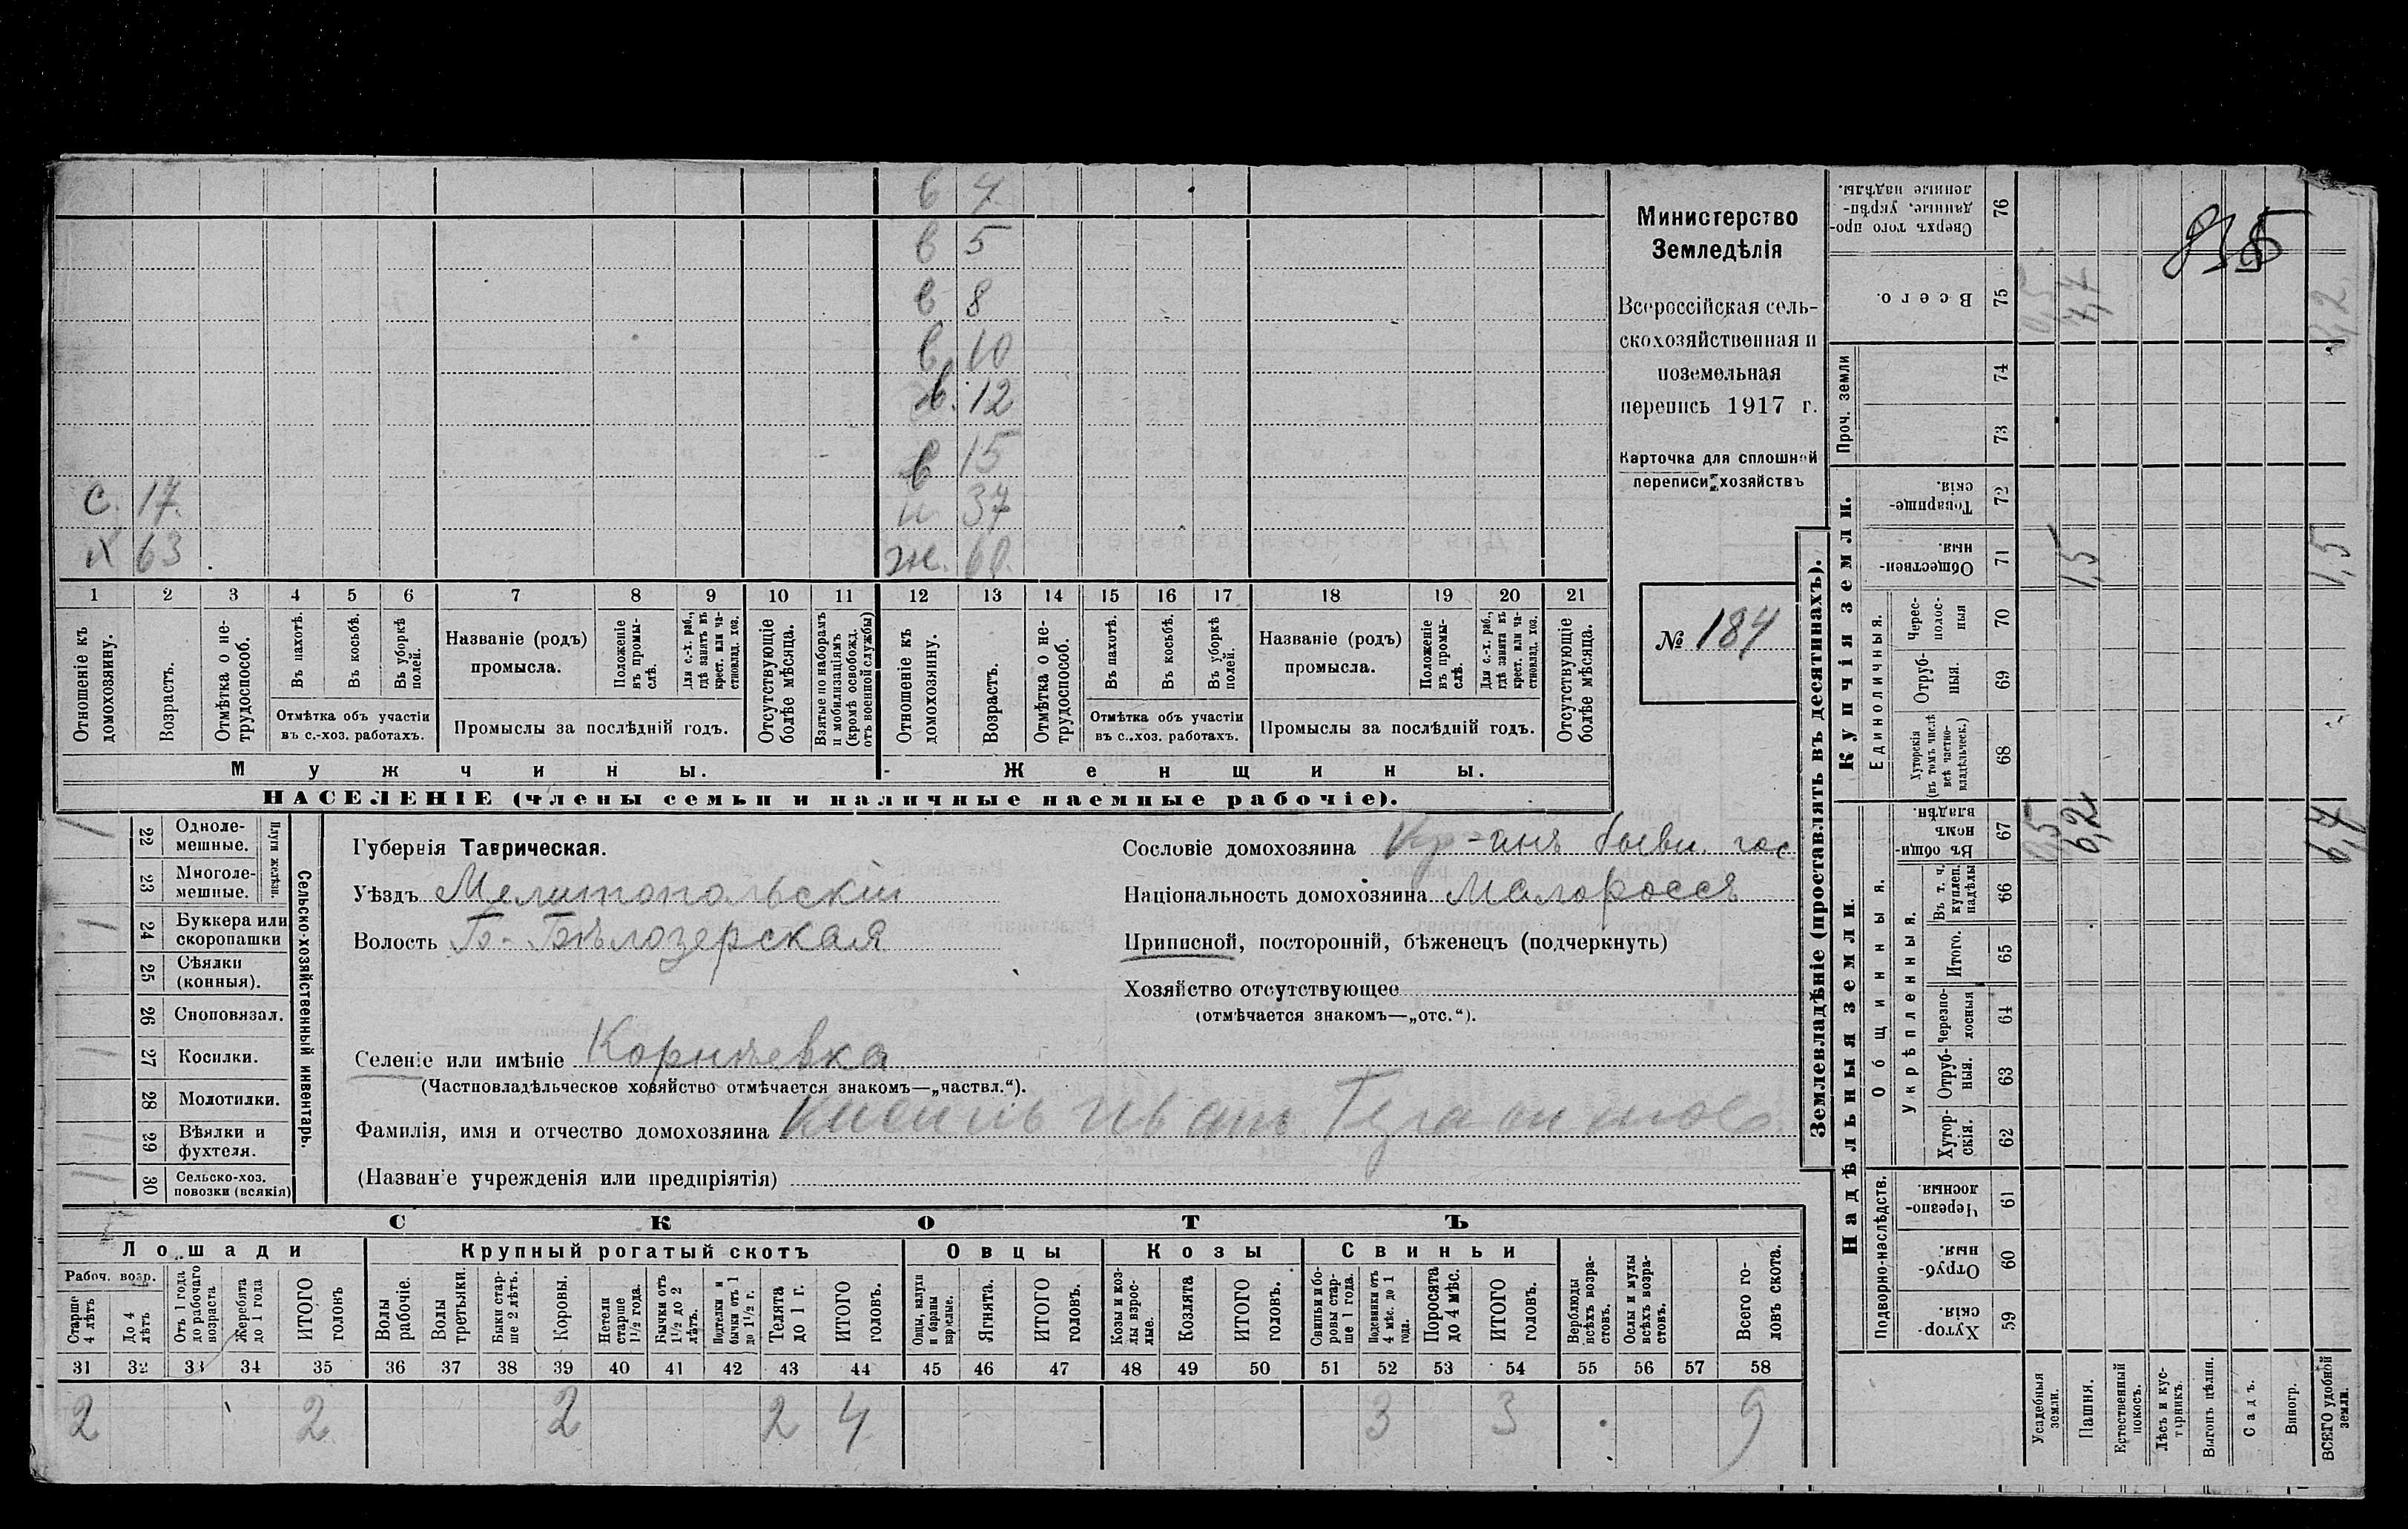 в 4
в 5
в 8
в 10
в. 12
в 15
С. 17. н 37
Х 63 ж. 60.
1 2 3 4 5 6 7 8 9 10 11 12 13 14 15 16 17 18 19 20 21
Отношеніе къ домохозяину.
Возрастъ.
Отмѣтка о не-трудоспособ.
Въ пахотѣ.
Въ косьбѣ.
Въ уборкѣ полей.
Отмѣтка объ участіи въ с.-хоз. работахъ.
Названіе (родъ) промысла.
Положеніе въ промы-слѣ.
Для с.-х. раб., гдѣ занятъ въ крест. или ча-стновлад. хоз.
Промыслы за послѣдній годъ.
Отсутствующіе болѣе мѣсяца.
Взятые по наборамъ и мобилизаціямъ (кромѣ освобожд. отъ военной службы)
Отношеніе къ домохозяину.
Возрастъ.
Отмѣтка о не-трудоспособ.
Въ пахотѣ.
Въ косьбѣ.
Въ уборкѣ полей.
Отмѣтка объ участіи въ с.-хоз. работахъ.
Названіе (родъ) промысла.
Положеніе въ промы-слѣ.
Для с.-х. раб., гдѣ занята въ крест. или ча-стновлад. хоз.
Промыслы за послѣдній годъ.
Отсутствующіе болѣе мѣсяца.
Мужчины. Женщины.
НАСЕЛЕНІЕ (члены семьи и наличные наемные рабочіе).
Министерство
Земледѣлія
Всероссійская сель-
скохозяйственная и
поземельная
перепись 1917 г.
Карточка для сплошной
переписи хозяйствъ
№ 184
Сельско-хозяйственный инвентарь.
Плуги желѣзн.
22 Одноле-мешные. 1
23 Многоле-мешные.
24 Буккера или скоропашки 1
25 Сѣялки (конныя).
26 Сноповязал.
27 Косилки. 1
28 Молотилки.
29 Вѣялки и фухтеля. 1
30 Сельско-хоз. повозки (всякія)
Губернія Таврическая.
Уѣздъ Мелитопольскій
Волость Б.-Бѣлозерская
Селеніе или имѣніе Корнѣевка
(Частновладѣльческое хозяйство отмѣчается знакомъ—„частвл.“).
Фамилія, имя и отчество домохозяина Иванъ
(Названіе учрежденія или предпріятія)
Сословіе домохозяина Кр-инъ бывш. гос
Національность домохозяина Малороссъ
Приписной, посторонній, бѣженецъ (подчеркнуть)
Хозяйство отсутствующее
(отмѣчается знакомъ—„отс.“).
СКОТЪ
Лошади Крупный рогатый скотъ Овцы Козы Свиньи
Рабоч. возр.
Старше 4 лѣтъ
До 4 лѣтъ
Отъ 1 года до рабочаго возраста
Жеребята до 1 года
ИТОГО головъ
Волы рабочіе.
Волы третьяки.
Быки стар-ше 2 лѣтъ.
Коровы.
Нетели старше 1½ года.
Бычки отъ 1½ до 2 лѣтъ.
Подтелки и бычки отъ 1 до 1½ г.
Телята до 1 г.
ИТОГО головъ.
Овцы, валухи и бараны взрослые.
Ягнята.
ИТОГО головъ.
Козы и коз-лы взрос-лые.
Козлята
ИТОГО головъ.
Свиньи и бо-ровы стар-ше 1 года.
Подсвинки отъ 4 мѣс. до 1 года.
Поросята до 4 мѣс.
ИТОГО головъ.
Верблюды всѣхъ возра-стовъ.
Ослы и мулы всѣхъ возра-стовъ.
Всего го-ловъ скота.
31 32 33 34 35 36 37 38 39 40 41 42 43 44 45 46 47 48 49 50 51 52 53 54 55 56 57 58
2 2 2 2 4 3 3 9
Землевладѣніе (проставлять въ десятинахъ).
Надѣльныя земли. Купчія земли. Проч. земли
Подворно-наслѣдств.
Общинныя.
Укрѣпленныя.
Единоличныя.
76 Сверхъ того про-данные, укрѣп-ленные надѣлы.
75 Всего. 0,5 7,7 8,2
74
73
72 Товарище-скія.
71 Обществен-ныя. 1,5 1,5
70 Черес-полос-ныя
69 Отруб-ныя.
68 Хуторскія (въ томъ числѣ всѣ частно-владѣльческ.)
67 Въ общин-номъ владѣн. 0,5 6,2 6,7
66 Въ т. ч. куплен. надѣлы
65 Итого.
64 Черезпо-лосныя
63 Отруб-ныя.
62 Хутор-скія.
61 Черезпо-лосныя.
60 Отруб-ныя.
59 Хутор-скія.
Усадебныя земли.
Пашня.
Естественный покосъ.
Лѣсъ и кус-тарникъ.
Выгонъ цѣлин.
Садъ.
Виногр.
ВСЕГО удобной земли.